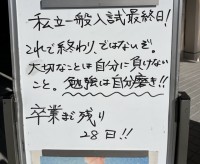 私立一般入試最終日!
これで終わり、ではないぞ。
大切なことは自分に負けない
こと。勉強は自分磨き!!
卒業まで残り
28日!!